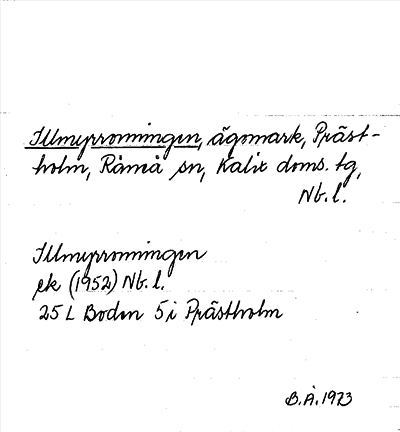 Illmyrromningen, ägomark, Präst-
holm, Råneå sn, Kalix doms. tg,
Nb. l.
Illmyrromningen
ek (1952) Nb. l.
25 L Boden 5 i Prästholm
B.Å. 1973